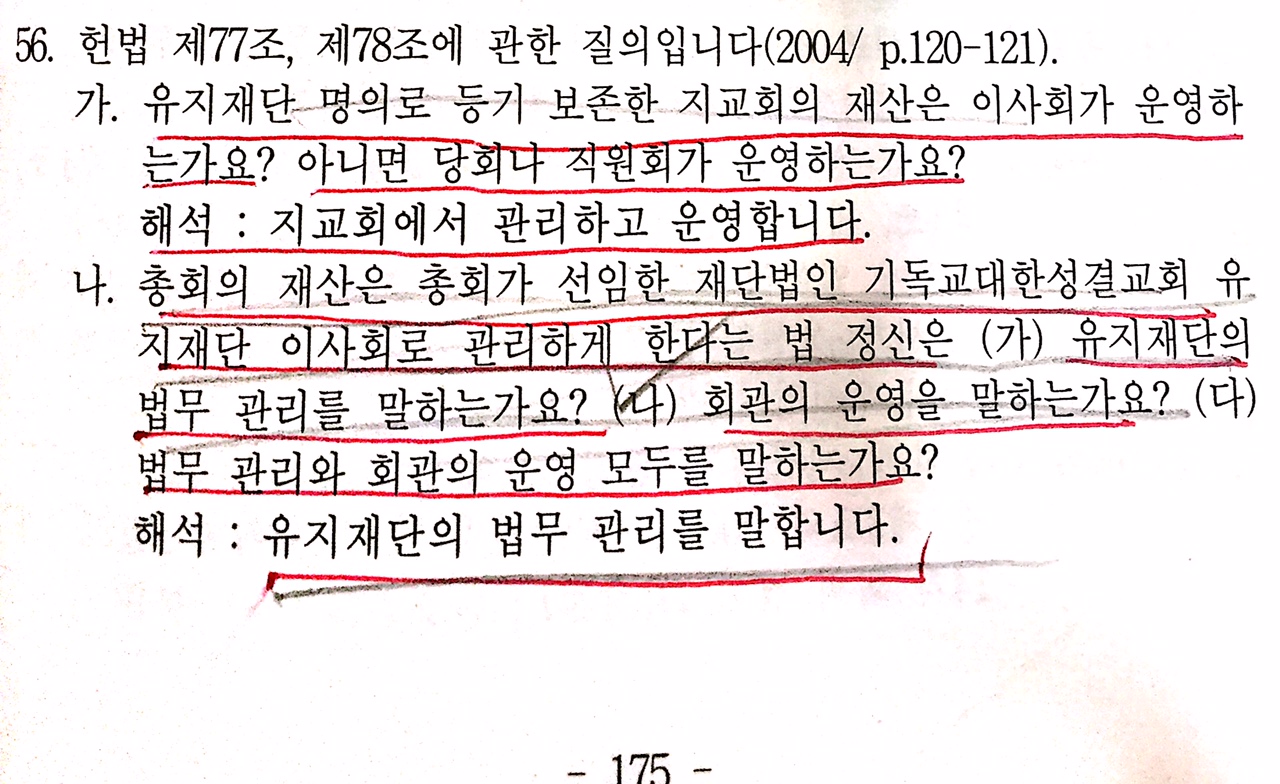 56. 헌법 제77조, 제78조에 관한 질의입니다(2004/ p.120-121).
가. 유지재단 명의로 등기 보존한 지교회의 재산은 이사회가 운영하
는가요? 아니면 당회나 직원회가 운영하는가요?
해석 : 지교회에서 관리하고 운영합니다.
나. 총회의 재산은 총회가 선임한 재단법인 기독교대한성결교회 유
지재단 이사회로 관리하게 한다는 법 정신은 (가) 유지재단의
법무 관리를 말하는가요? (나) 회관의 운영을 말하는가요? (다)
법무 관리와 회관의 운영 모두를 말하는가요?
해석 : 유지재단의 법무 관리를 말합니다.
- 175 -